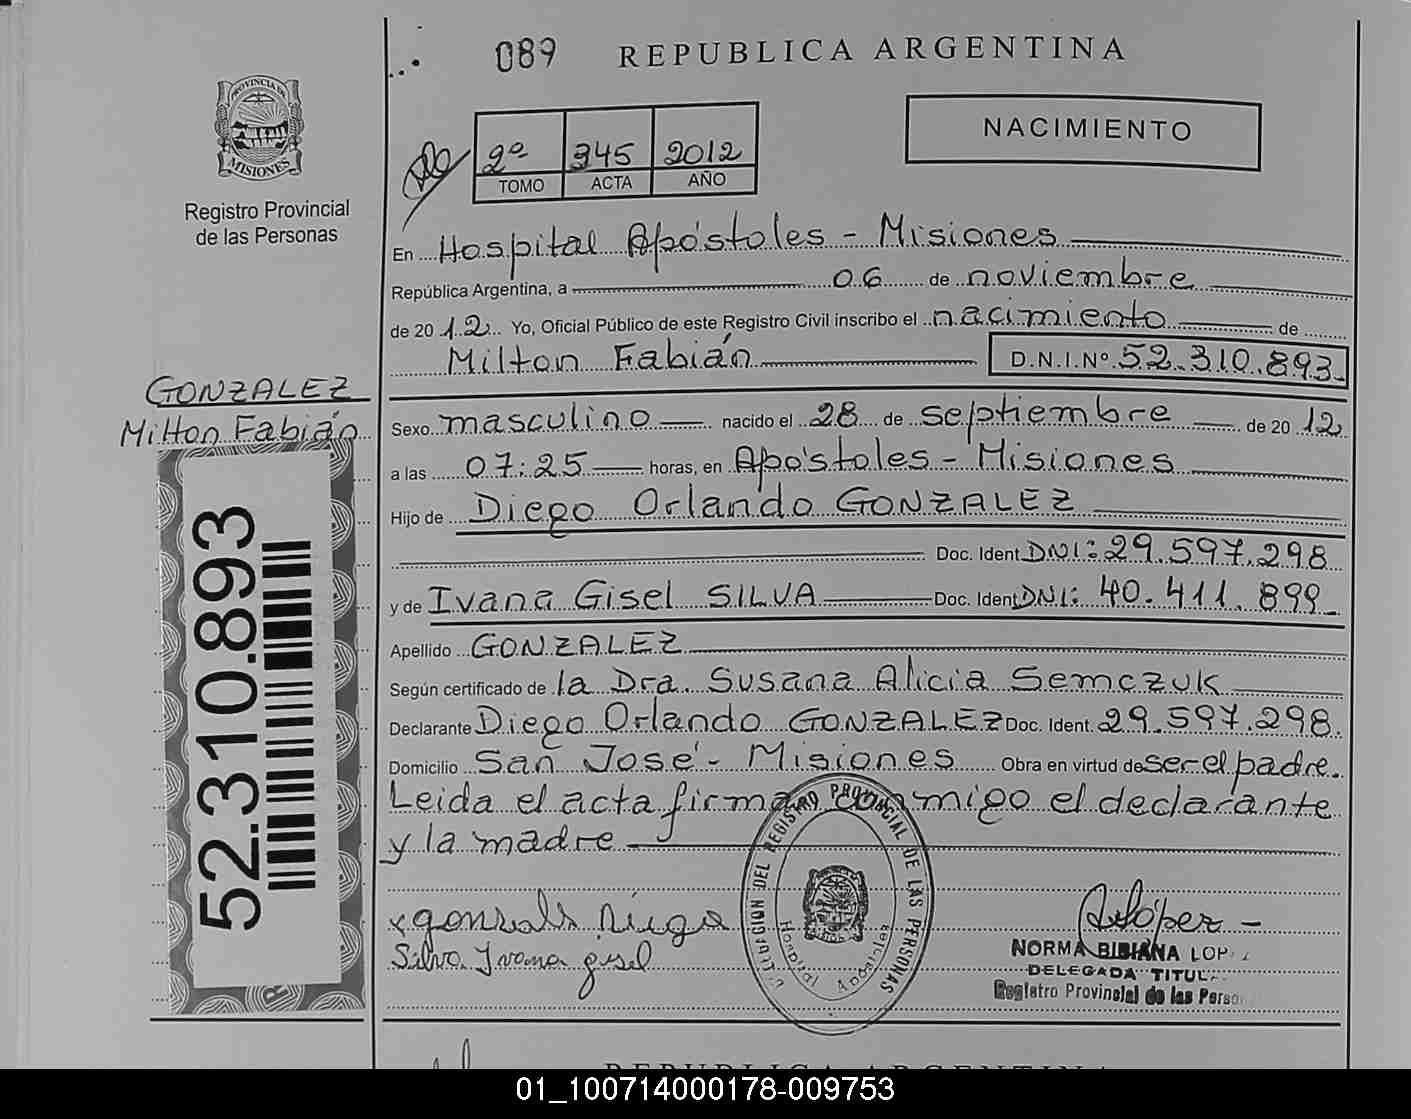 089 REPUBLICA ARGENTINA
PROVINCIA DE
MISIONES
Registro Provincial
de las Personas
2º 345 2012
TOMO ACTA AÑO
NACIMIENTO
En Hospital Apóstoles - Misiones
República Argentina, a 06 de noviembre
de 2012 Yo, Oficial Público de este Registro Civil inscribo el nacimiento de
Milton Fabián D.N.I.Nº 52.310.893
GONZALEZ
Milton Fabián
Sexo masculino nacido el 28 de septiembre de 2012
a las 07:25 horas, en Apóstoles - Misiones
Hijo de Diego Orlando GONZALEZ
Doc. Ident DNI: 29.597.298
y de Ivana Gisel SILVA Doc. Ident DNI: 40.411.899
Apellido GONZALEZ
Según certificado de la Dra. Susana Alicia Semczuk
Declarante Diego Orlando GONZALEZ Doc. Ident. 29.597.298.
Domicilio San José - Misiones Obra en virtud de ser el padre.
Leida el acta firma conmigo el declarante
y la madre
52.310.893
DEL REGISTRO PROVINCIAL DE LAS PERSONAS
Hospital Apóstoles
Silva Ivana gisel
NORMA BIBIANA LOP
DELEGADA TITUL
Registro Provincial de las Perso
REPUBLICA ARGENTINA
01_100714000178-009753